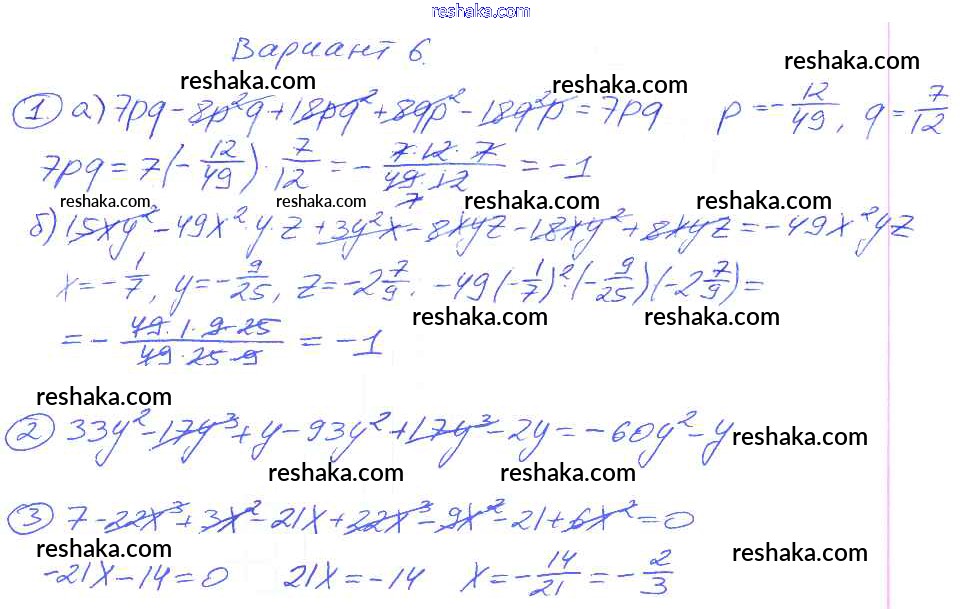 reshaka.com
Вариант 6.
reshaka.com reshaka.com reshaka.com
① а) 7pq - 8p²q + 18pq² + 8qp² - 18q²p = 7pq p = -12/49, q = 7/12
7pq = 7(-12/49) · 7/12 = - 7·12·7/49·12 = -1
7
reshaka.com reshaka.com reshaka.com reshaka.com
б) 15xy² - 49x²·y·z + 3y²x - 8xyz - 18xy² + 8xyz = -49x²yz
x = -1/7, y = -9/25, z = -2 7/9. -49(-1/7)²·(-9/25)(-2 7/9) =
reshaka.com reshaka.com
= - 49·1·9·25/49·25·9 = -1
reshaka.com
② 33y² - 17y³ + y - 93y² + 17y³ - 2y = -60y² - y
reshaka.com
reshaka.com reshaka.com
③ 7 - 22x³ + 3x² - 21x + 22x³ - 9x² - 21 + 6x² = 0
reshaka.com reshaka.com reshaka.com
-21x - 14 = 0 21x = -14 x = -14/21 = -2/3